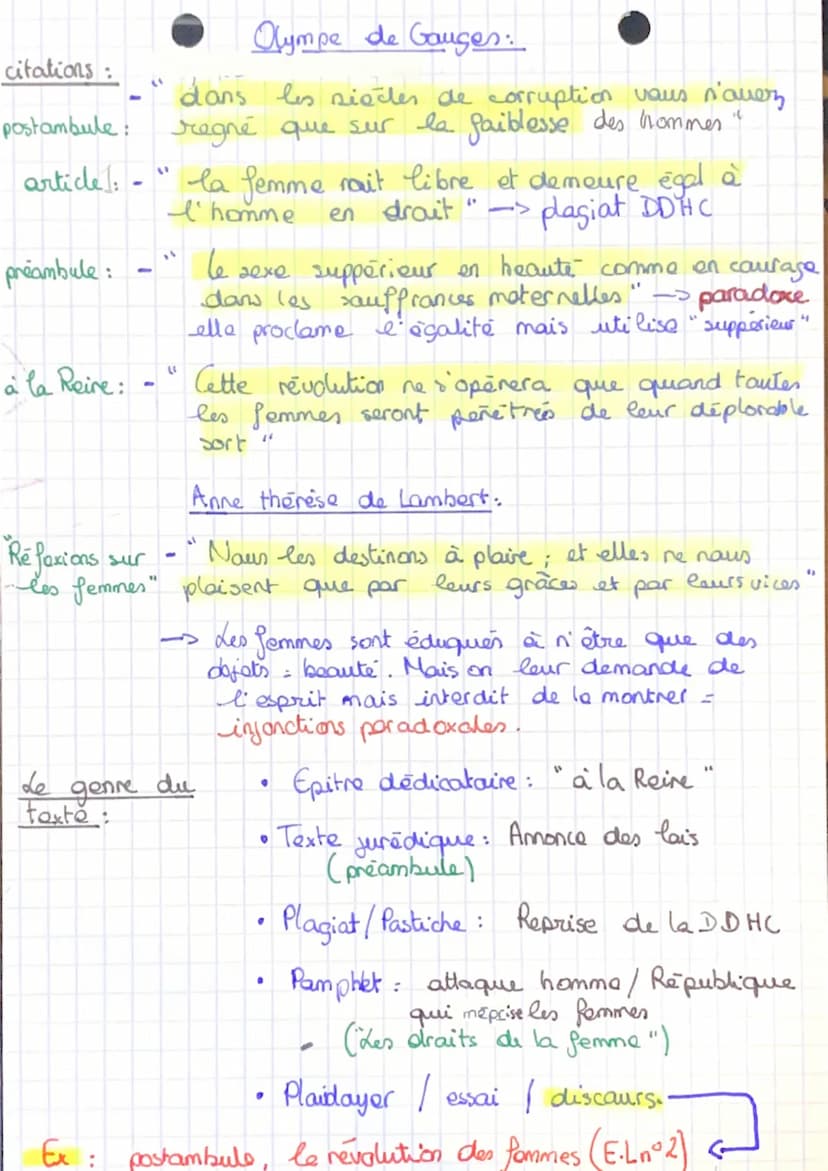 Olympe de Gouges :
citations :
- " dans les siècles de corruption vous n'avez
postambule : regné que sur la faiblesse des hommes "
article 1 : - " la femme nait libre et demeure égal à
l'homme en droit " -> plagiat DDHC
préambule : - " le sexe suppérieur en beauté comme en courage
dans les souffrances maternelles " -> paradoxe
elle proclame l'égalité mais utilise " suppérieur "
à la Reine : - " Cette révolution ne s'opérera que quand toutes
les femmes seront pénétrés de leur déplorable
sort "
Anne thérèse de Lambert :
"Réflexions sur - " Nous les destinons à plaire ; et elles ne nous
les femmes" plaisent que par leurs grâces et par leurs vices "
-> Les femmes sont éduqués à n'être que des
objets = beauté. Mais on leur demande de
l'esprit mais interdit de le montrer =
injonctions paradoxales.
Le genre du • Epitre dédicataire : " à la Reine "
texte :
• Texte juridique : Annonce des lois
(préambule)
• Plagiat / Pastiche : Reprise de la DDHC
• Pamphlet : attaque homme / République
qui méprise les femmes
- ("Les droits de la femme")
• Plaidoyer / essai / discours.
Ex : postambule, le révolution des femmes (E.L n°2)